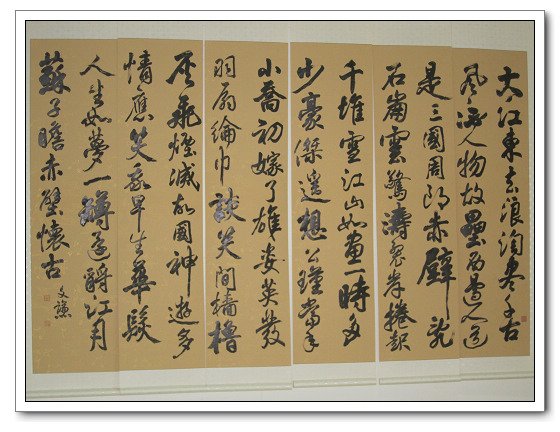 大江東去浪淘盡千古
風流人物故壘西邊人道
是三國周郎赤壁亂
石崩雲驚濤裂岸捲起
千堆雪江山如畫一時多
少豪傑遙想公瑾當年
小喬初嫁了雄姿英發
羽扇綸巾談笑間檣櫓
灰飛煙滅故國神遊多
情應笑我早生華髮
人生如夢一樽還酹江月
蘇子瞻赤壁懷古
文謙